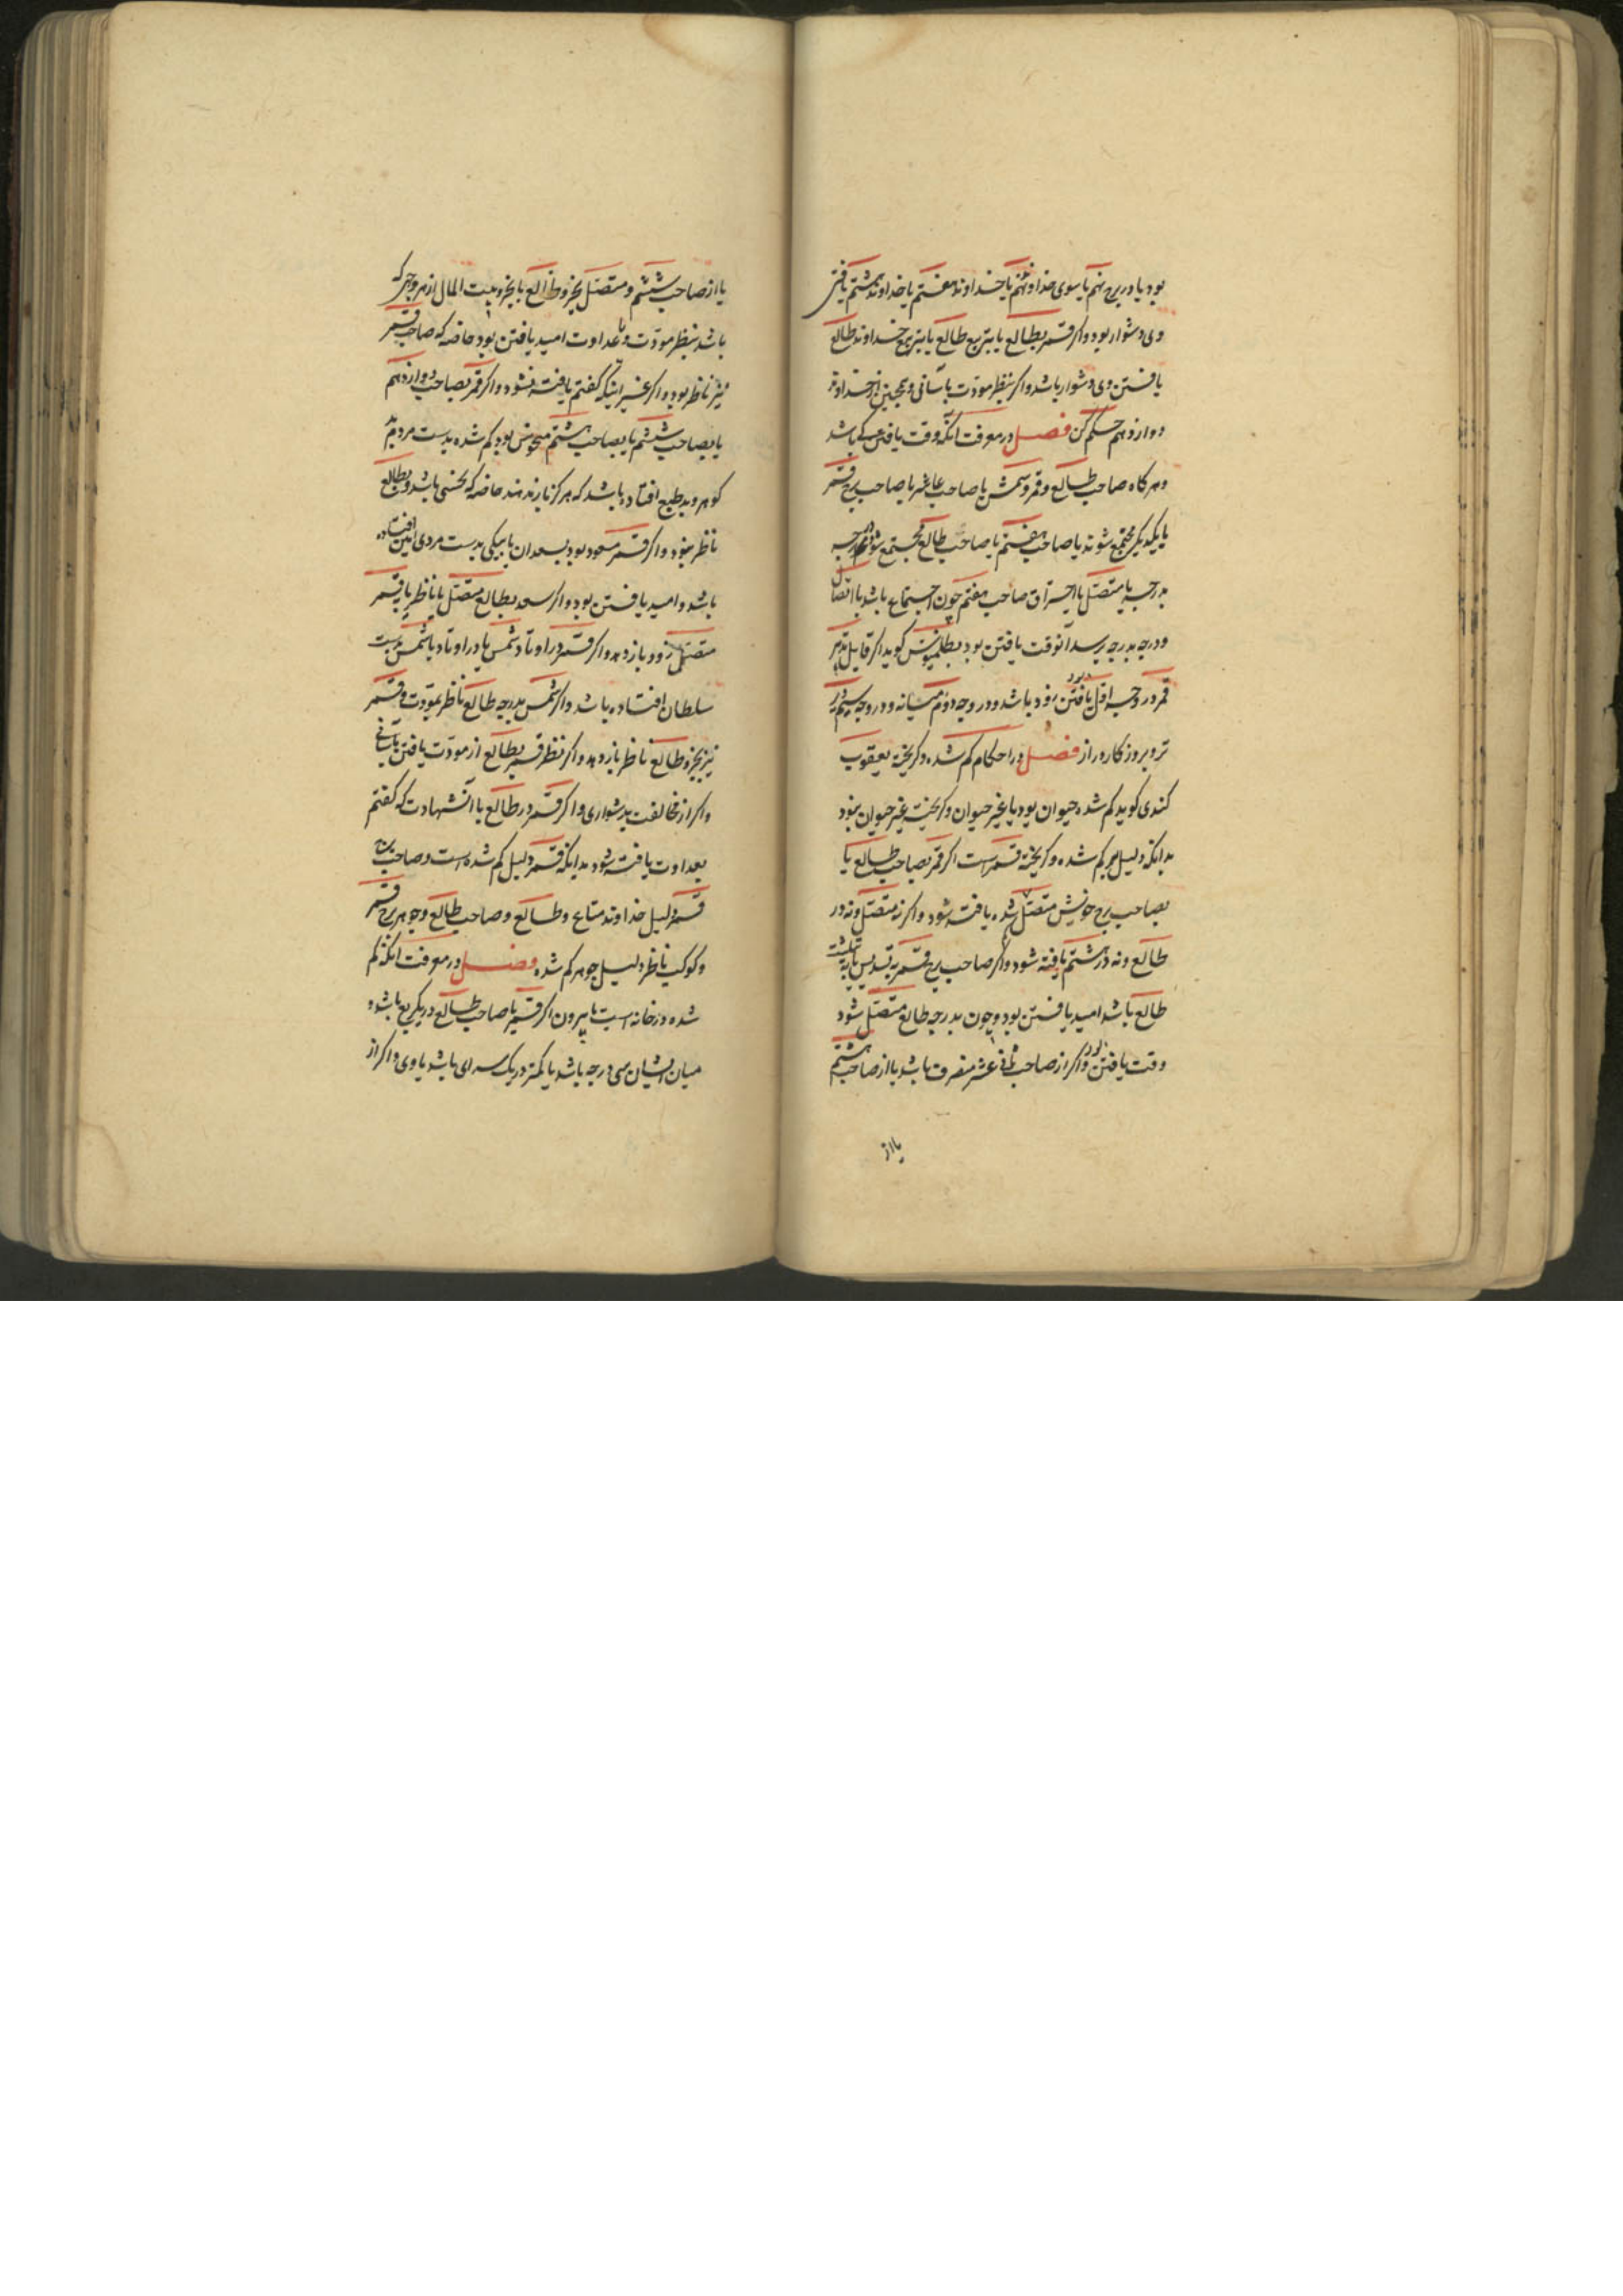 بود یا در برج نهم یا سوی خداوند نهم یا خداوند هفتم یا خداوند هشتم یافتن
وی دشوار بود و اکر قمر بطالع یا بتربیع طالع یا بتربیع خداوند طالع
یافتن وی دشوار باشد و اکر بنظر مودت بآسانی و همچنین از خداوند
دوازدهم حکم کن فصل در معرفت آنکه وقت یافتن کی باشد
و هرکاه صاحب طالع و قمر و شمس یا صاحب عاشر یا صاحب برج قمر
با یکدیکر مجتمع شوند یا صاحب هفتم با صاحب طالع مجتمع شود درجه
بدرجه یا متصل یا احتراق صاحب هفتم چون اجتماع باشد یا اتصال
و درجه بدرجه رسد آنوقت یافتن بود بطلمیوس کوید اکر قابل تدبیر
قمر در وجه اول یافتن زود باشد و در وجه دوم میانه و در وجه سیم دیر
تر و بروزکار دراز فصل در احکام کم شده و کریخته یعقوب
کندی کوید کم شده حیوان بود یا غیر حیوان و کریخته غیر حیوان نبود
بدانکه دلیل هر کم شده و کریخته قمر است اکر قمر بصاحب طالع یا
بصاحب برج خویش متصل شده یافته شود و اکر نه متصل و نه در
طالع و نه در هشتم یافته شود و اکر صاحب برج قمر به تسدیس یا به تثلیث
طالع باشد امید یافتن بود و چون بدرجه طالع متصل شود
وقت یافتن بود و اکر از صاحب ثانی عشر منصرف باشد یا از صاحب هشتم
یا از
یا از صاحب ششم و متصل بجزو طالع یا بجزو بیت المال از هر وجهی که
باشد بنظر مودت و یا عداوت امید یافتن بود خاصه که صاحب قمر
نیز ناظر بود و اکر غیر اینکه کفتم یافته نشود و اکر قمر بصاحب دوازدهم
یا بصاحب ششم یا بصاحب هشتم منحوس بود کم شده بدست مردم بد
کوهر و بد طبع افتاده باشد که هرکز باز ندهند خاصه که نحسی باشد و بطالع
ناظر نبود و اکر قمر مسعود بود بسعدان یا بیکی بدست مردی امین افتاده
باشد و امید یافتن بود و اکر سعد بطالع متصل یا ناظر یا بقمر
متصل زود باز دهد و اکر قمر در اوتاد شمس یا در اوتاد یا شمس بدست
سلطان افتاده باشد و اکر شمس بدرجه طالع ناظر بمودت و قمر
نیز بجزو طالع ناظر باز دهد و اکر نظر قمر بطالع از مودت یافتن بآسانی
و اکر از مخالفت بدشواری و اکر قمر در طالع با آن شهادت که کفتم
بعداوت یافته شود بدانکه قمر دلیل کم شده است و صاحب برج
قمر دلیل خداوند متاع و طالع و صاحب طالع و جوهر برج قمر
و کوکب ناظر دلیل جوهر کم شده فصل در معرفت آنکه کم
شده در خانه است یا بیرون اکر قمر با صاحب طالع در یک ربع باشد و
میان ایشان سی درجه باشد یا کمتر در یک سرای باشد با وی و اکر از